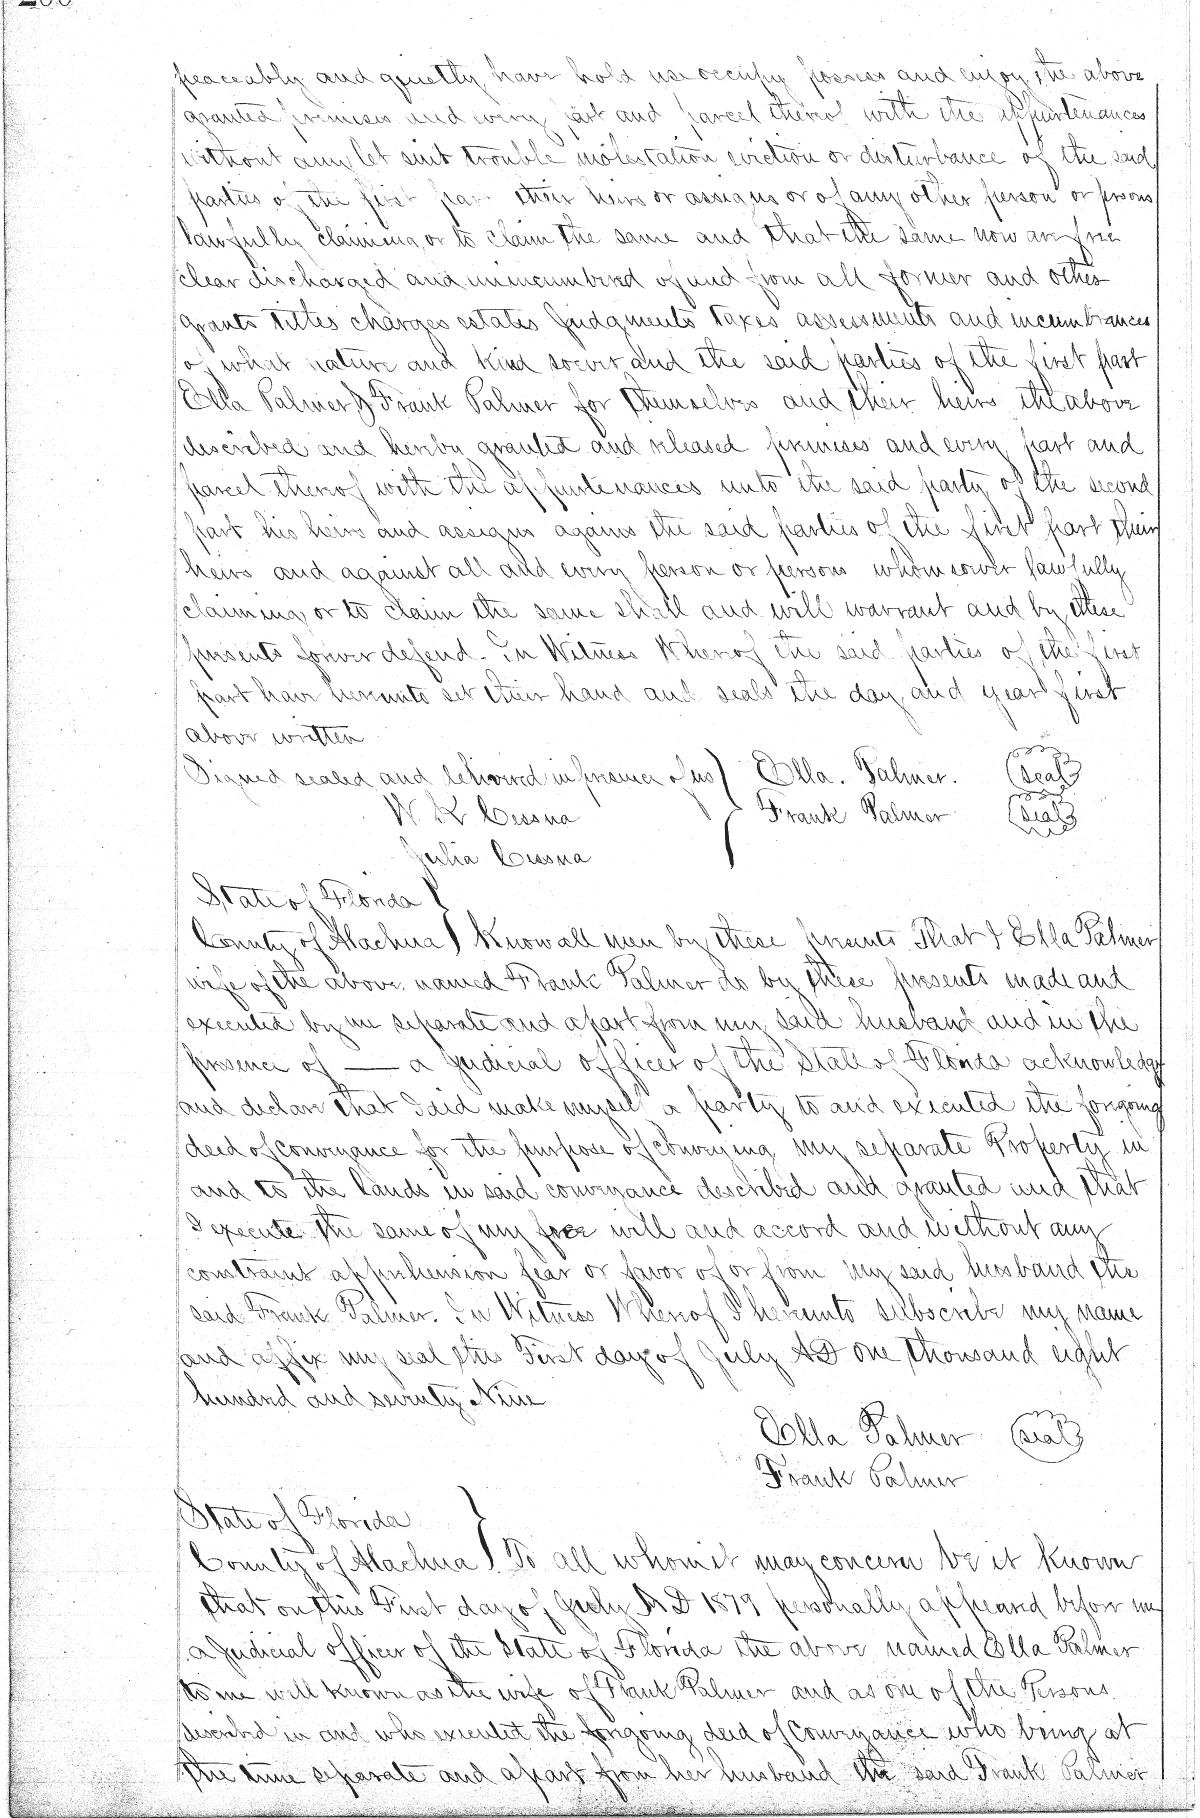 peaceably and quietly have hold use occupy possess and enjoy the above
granted premises and every part and parcel thereof with the appurtenances
without any let suit trouble molestation eviction or disturbance of the said
parties of the first part their heirs or assigns or of any other person or persons
lawfully claiming or to claim the same and that the same now are free
clear discharged and unincumbired of and from all former and other
grants titles charges estates Judgments taxes assessments and incumbrances
of what nature and kind soever and the said parties of the first part
Ella Palmer & Frank Palmer for themselves and their heirs the above
described and hereby granted and released premises and every part and
parcel thereof with the appurtenances unto the said party of the second
part his heirs and assigns agains the said parties of the first part their
heirs and against all and every person or persons whomsoever lawfully
claiming or to claim the same shall and will warrant and by these
presents forever defend. In Witness Whereof the said parties of the first
part have hereunto set their hand and seals the day and year first
above written
Signed sealed and delivered in presence of us } Ella. Palmer. (seal)
W. K Cessna Frank Palmer (seal)
Julia Cessna
State of Florida }
County of Alachua } Know all men by these presents That I Ella Palmer
wife of the above named Frank Palmer do by these presents made and
executed by me separate and apart from my said husband and in the
presence of — a Judicial officer of the State of Florida acknowledge
and declare that I did make myself a party to and executed the forgoing
deed of conveyance for the purpose of conveying my separate Property in
and to the lands in said conveyance described and granted and that
I execute the same of my free will and accord and without any
constraint apprehension fear or favor of or from my said husband the
said Frank Palmer. In Witness Whereof I hereunto subscribe my name
and affix my seal this First day of July AD one thousand eight
hundred and seventy Nine
Ella Palmer (seal)
Frank Palmer
State of Florida }
County of Alachua } To all whom it may concern be it known
that on this First day of July AD 1879 personally appeared before me
a Judicial officer of the State of Florida the above named Ella Palmer
to me well known as the wife of Frank Palmer and as one of the Persons
described in and who executed the forgoing deed of Conveyance who being at
the time separate and apart from her husband the said Frank Palmer